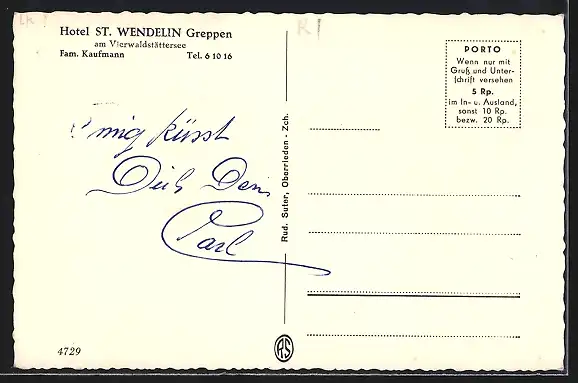 Hotel ST. WENDELIN Greppen
am Vierwaldstättersee
Fam. Kaufmann Tel. 6 10 16
PORTO
Wenn nur mit
Gruß und Unter-
schrift versehen
5 Rp.
im In- u. Ausland,
sonst 10 Rp.
bezw. 20 Rp.
küsst
Dich Dein
Carl
Rud. Suter, Oberrieden - Zch.
4729
RS